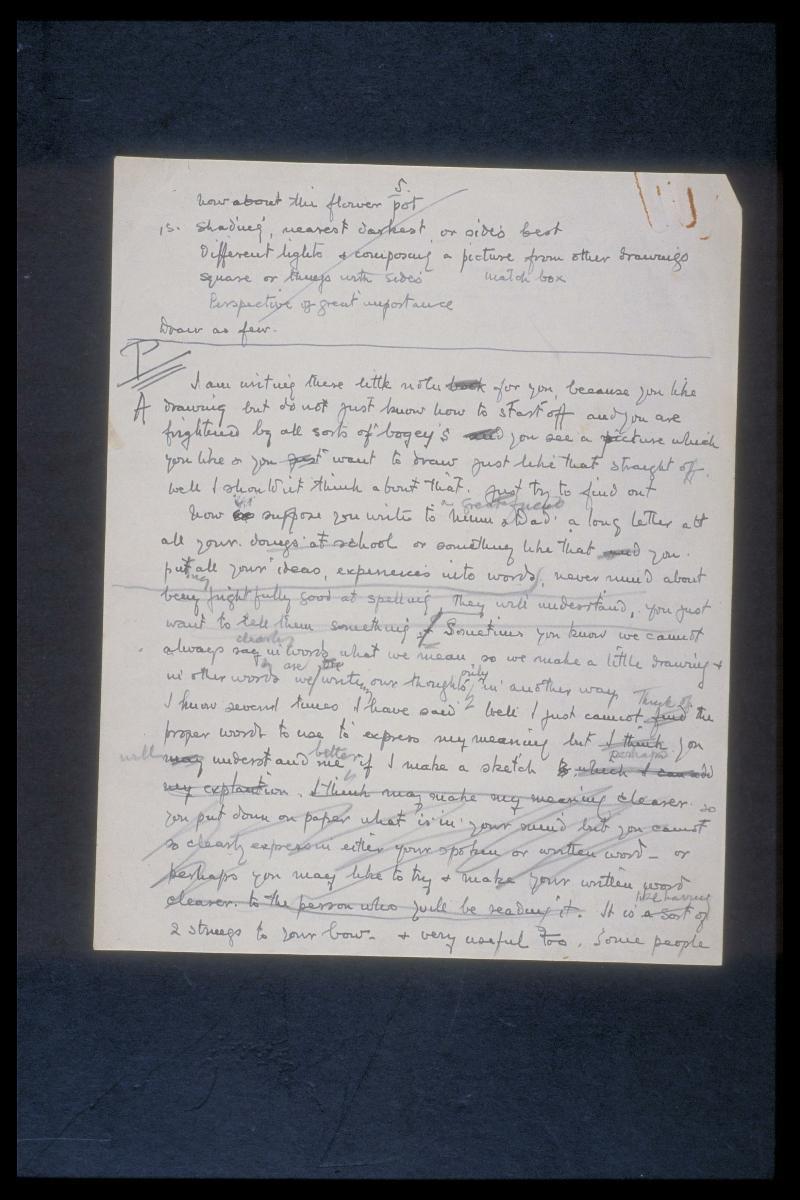 5.
how about this flower pot
15. Shading, nearest darkest or sides best
Different lights & composing a picture from other drawings
square or things with sides match box
Perspective of great importance
Draw as few.
P
I am writing these little notes book for you, because you like
A drawing but do not just know how to start off and you are
frightened by all sorts of bogey's and you see a picture which
you like & you just want to draw just like that straight off.
well I shouldn't think about that. Just try to find out
a great friend
Now suppose you write to Mum & Dad a long letter abt
all your doings at school or something like that and you
putting all your ideas, experiences into words, never mind about
being frightfully good at spelling, they will understand, you just
want to tell them something. Sometimes you know we cannot
clearly
always say in words what we mean so we make a little drawing &
are only
in other words we writing our thoughts, in another way. Think of
I know several times I have said " Well I just cannot find the
proper words to use to express my meaning but I think you
will better perhaps
may understand me if I make a sketch which I can add
my explantion. I think may make my meaning clearer. so
you put down on paper what is in your mind but you cannot
so clearly express in either your spoken or written word — or
perhaps you may like to try & make your written word
like having
clearer. to the person who will be reading it. It is a sort of
2 strings to your bow — & very useful too. Some people